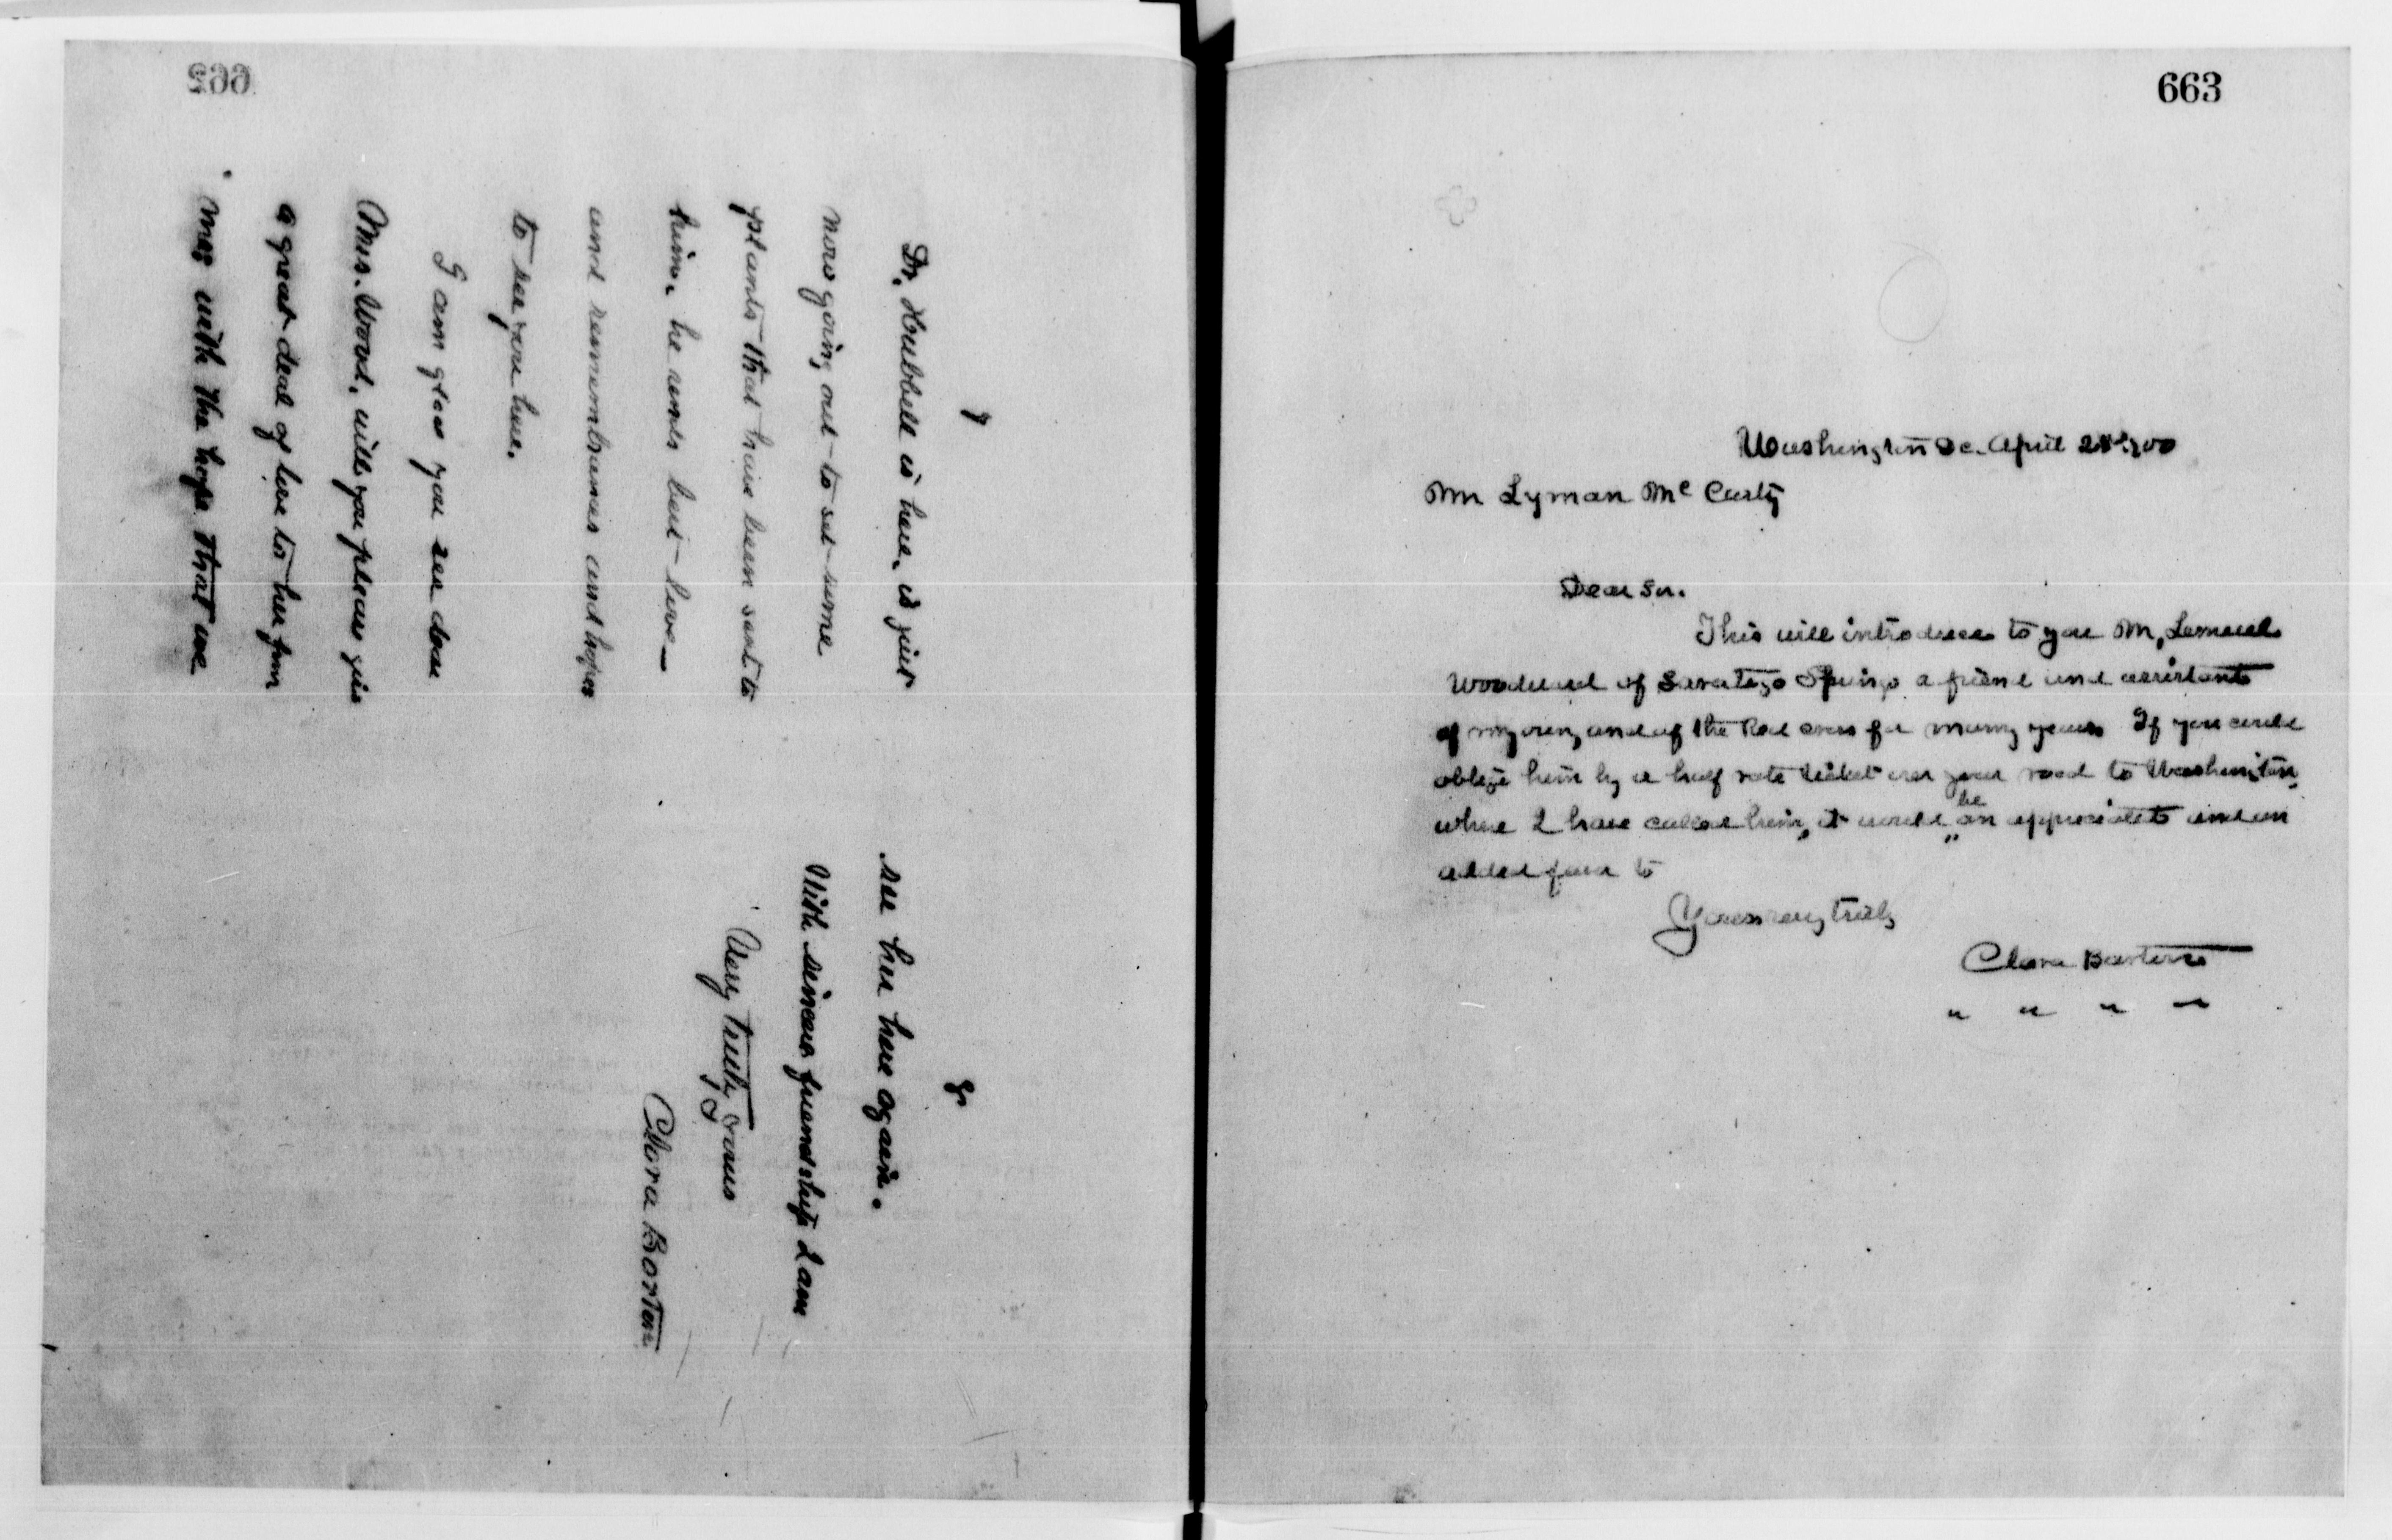 7
Dr. Hubbell is here, is just
now going out to set some
plants that have been sent to
him. he sends best love—
and remembrances and hopes
to see you here.
I am glad you see dear
Mrs. Wood, will you please give
a great deal of love to her from
me, with the hope that we
8
see her here again.
With sincere friendship I am
Very truly yours
Clara Barton
663
Washington DC. April 1900
Mr Lyman McCarty
Dear Sir.
This will introduce to you Mr, Lemuel
Woodward of Saratoga Springs a friend and assistant
of my own, and of the Red Cross for many years If you could
oblige him by a half rate ticket over your road to Washington,
where I have called him, it would be an appreciated and an
added favor to
Yours very truly
Clara Barton
" " " "